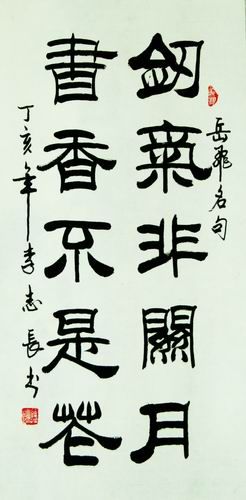 岳飛名句
劒氣非關月
書香不是花
丁亥年李志長书